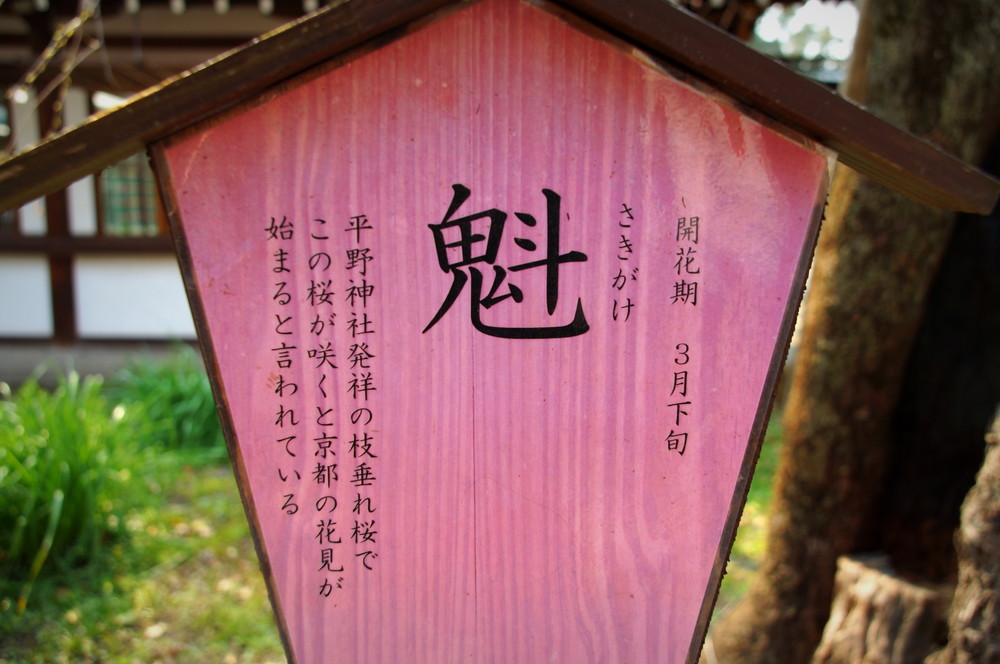 開花期　３月下旬
さきがけ
魁
平野神社発祥の枝垂れ桜で
この桜が咲くと京都の花見が
始まると言われている